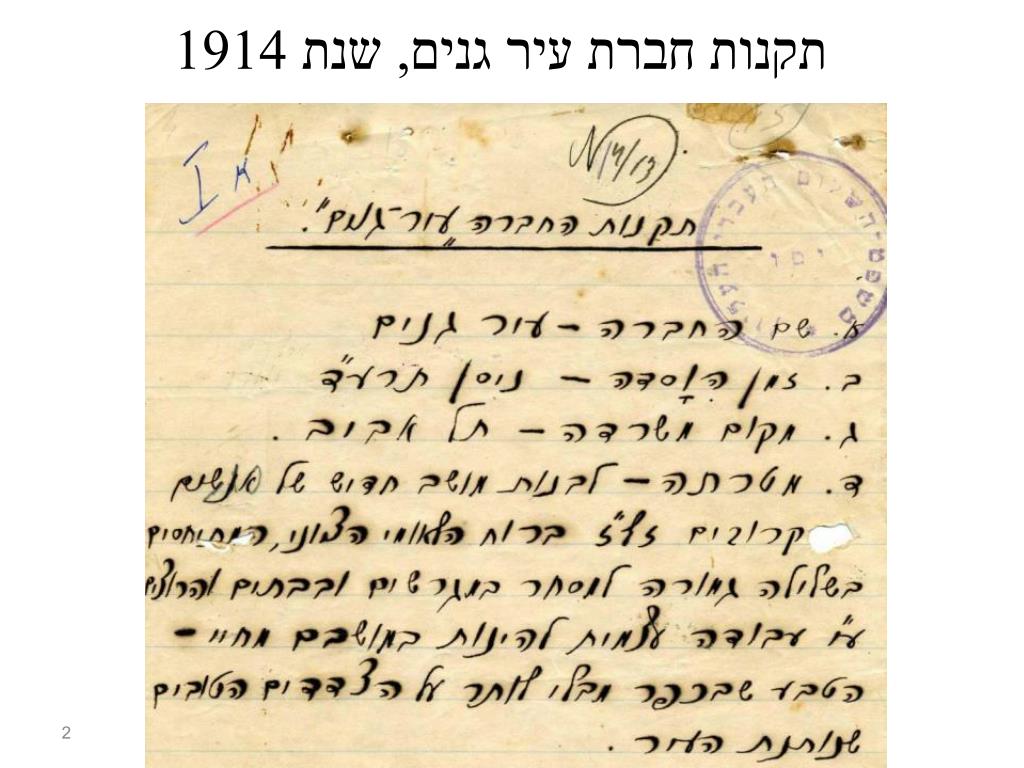 תקנות חברת עיר גנים, שנת 1914
I א.
N 14/13
תקנות החברה „עיר-גנים".
א. שם החברה – עיר גנים
ב. זמן הִוָסדה – ניסן תרע"ד
ג. מקום משרדה – תל אביב .
ד. מטרתה – לבנות מושב חדיש של אנשים
קרובים זל"ז ברוח הלאומי הצוני, המתיחסים
בשלילה גמורה למסחר במגרשים ובבתים והרוצים
ע"י עבודה עצמית להינות במושבם מחיי –
הטבע שבכפר מבלי לותר על הצדדים הטובים
שנותנת העיר .
משפט-השלום העברי
יפו
2